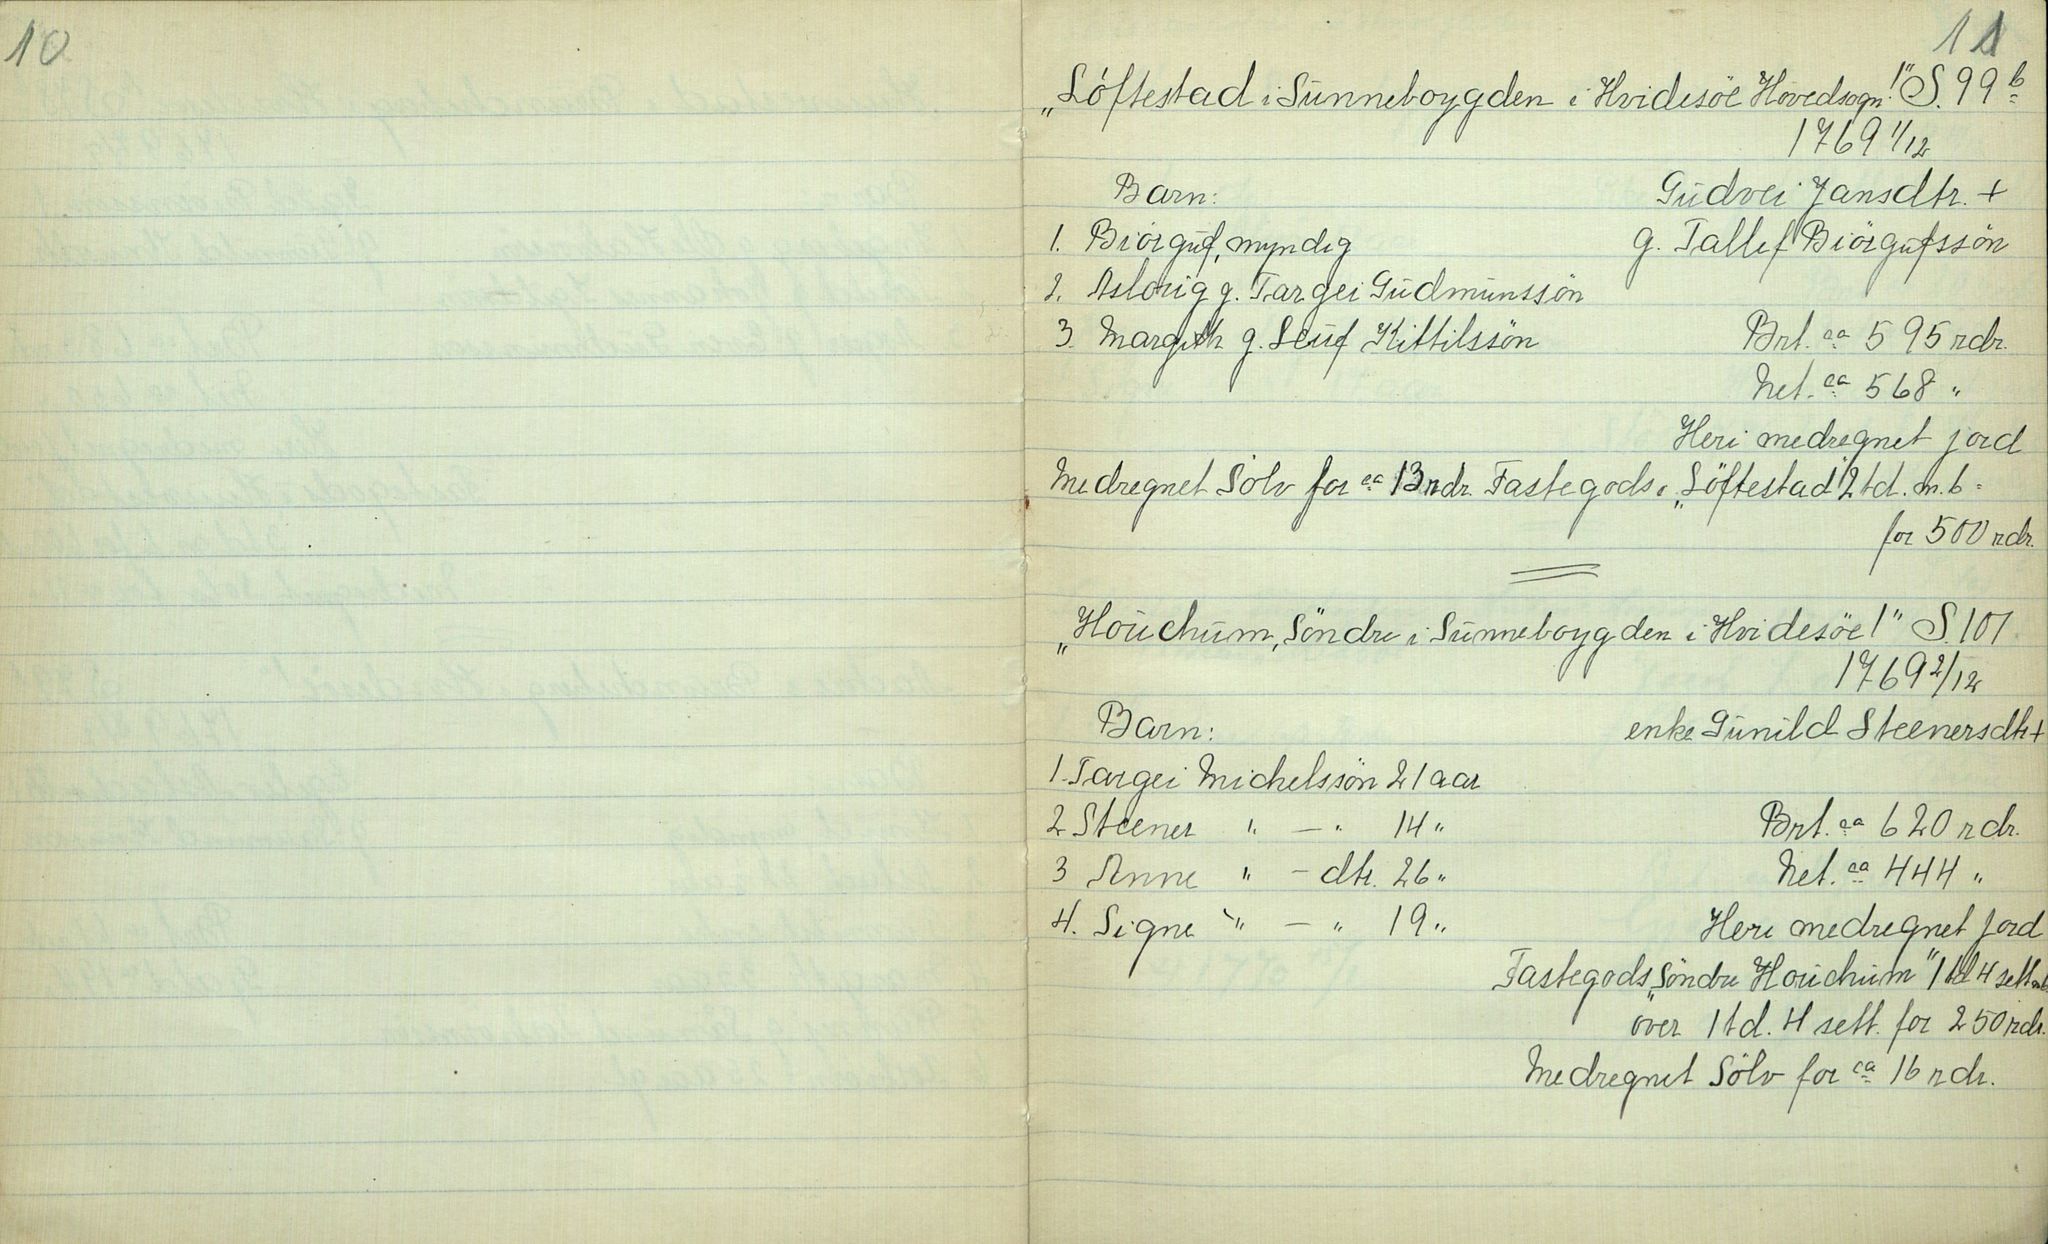 10
11
„Löftestad i Sünneboygden i Hvidesöe Hovedsogn!" S. 99 b
1769 1/12
Barn: Güdvei Jansdtr. +
1. Biörguf, myndig g. Tallef Biörgufssön
2. Asloüg g. Targei Güdmünssön
3. Margith g. Leüf Kittilssön Brt. ca 595 rdr.
Net. ca 568 "
Heri medregnet jord
Medregnet Sölv for ca 13 rdr. Fastegods i „Löftestad" 2 td. m.b.
for 500 rdr.
„Hoüchüm, Söndre i Sünneboygden i Hvidesöe!" S. 101
1769 2/12
Barn: enke Günild Steenersdtr +
1. Targei Michelssön 21 aar
2 Steener " — " 14 " Brt. ca 620 rdr.
3 Anne " — dtr. 26 " Net. ca 444 "
4. Signe " — " 19 " Heri medregnet jord
Fastegods „Söndre Hoüchüm" 1 td 4 sett. mb
over 1 td. 4 sett. for 250 rdr.
Medregnet Sölv for ca 16 rdr.